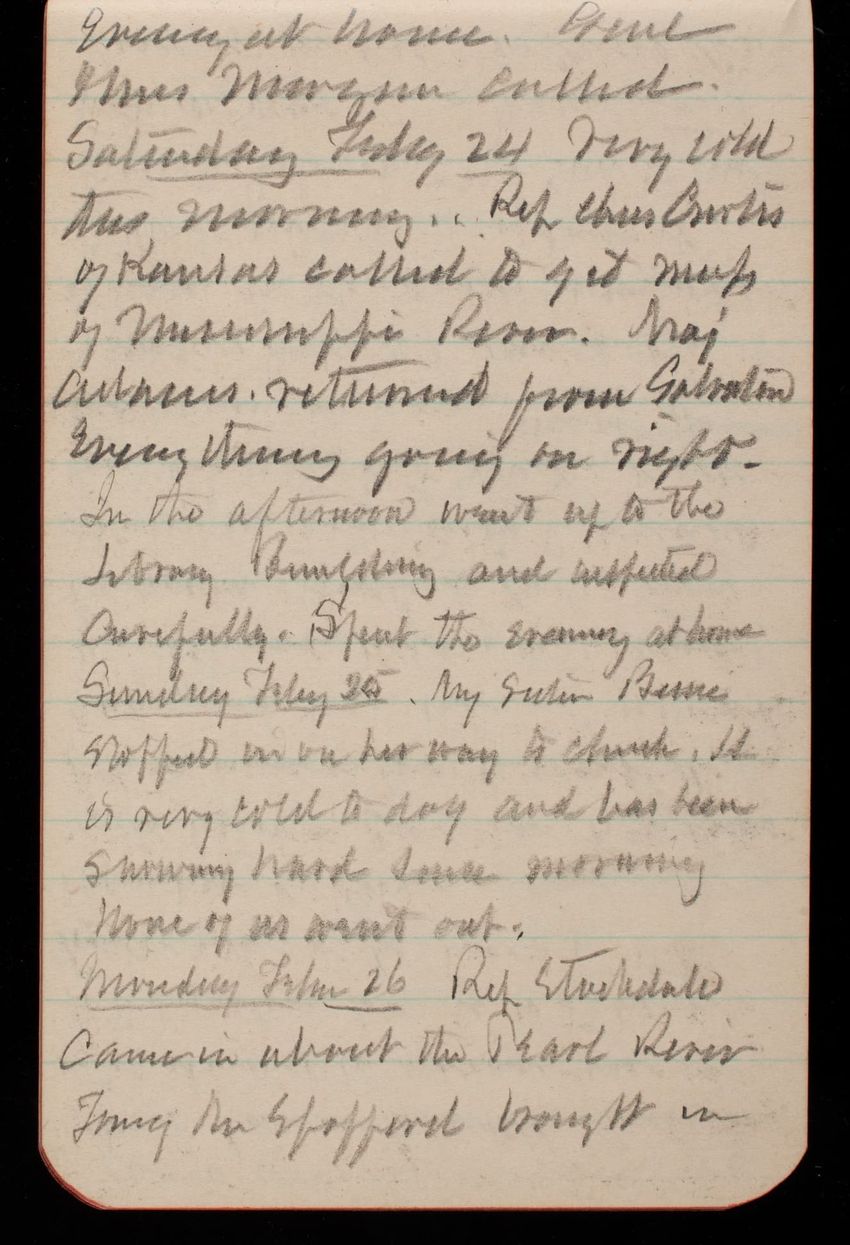 Evening at home. Genl
& Mrs Morgan called.
Saturday Feby 24 Very cold
this morning.. Rep Chas Curtis
of Kansas called to get map
of Mississippi River. Maj
Adams. returned from Galveston
Everything going on right.
In the afternoon went up to the
Library Building and inspected
Carefully. Spent the evening at home
Sunday Feby 25. My Sister Bessie
stopped in on her way to church. It
is very cold to day and has been
snowing hard since morning
None of us went out.
Monday Feby 26 Rep Stockdale
Came in about the Pearl River
Mr Spofford brought in